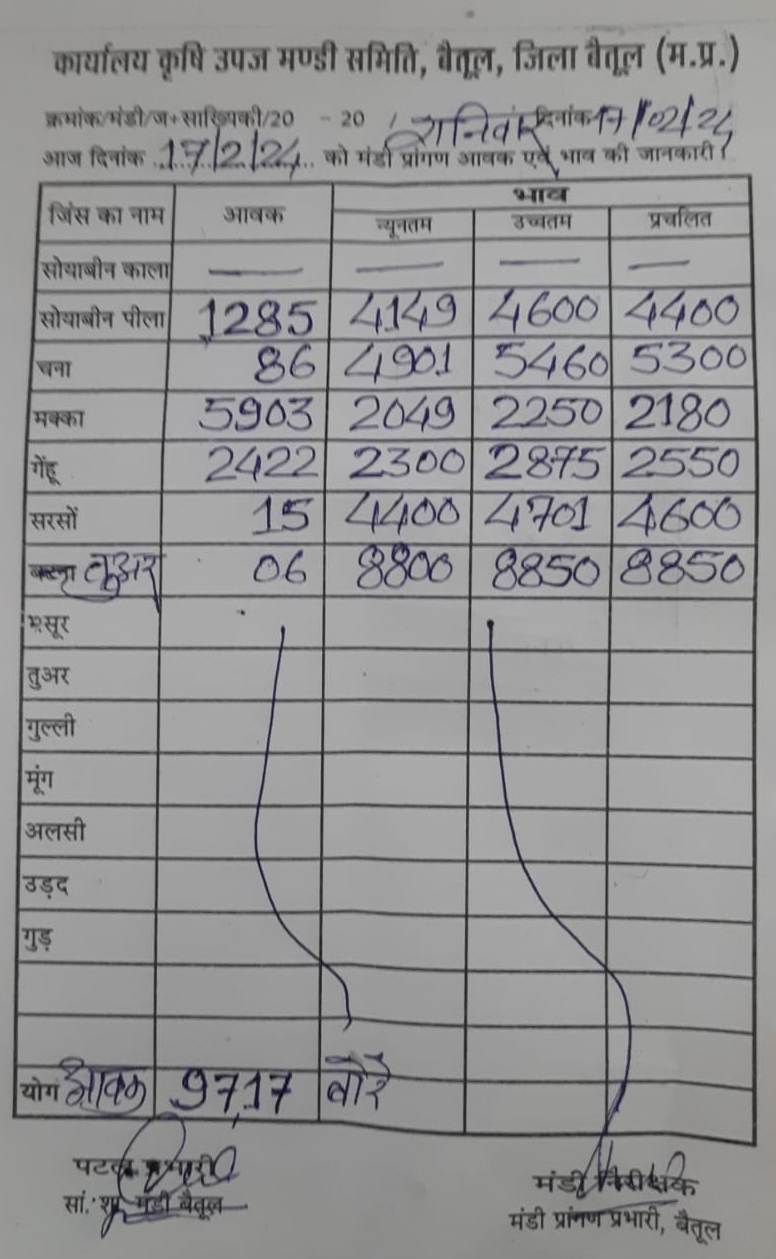 कार्यालय कृषि उपज मण्डी समिति, बैतूल, जिला बैतूल (म.प्र.)
क्रमांक/मंडी/ज+सांख्यिकी/20 - 20 / शनिवार दिनांक 17/02/24
आज दिनांक 17/2/24 को मंडी प्रांगण आवक एवं भाव की जानकारी
जिंस का नाम आवक भाव
न्यूनतम उच्चतम प्रचलित
सोयाबीन काला — — — —
सोयाबीन पीला 1285 4149 4600 4400
चना 86 4901 5460 5300
मक्का 5903 2049 2250 2180
गेंहू 2422 2300 2875 2550
सरसों 15 4400 4701 4600
तुअर 06 8800 8850 8850
मसूर
तुअर
गुल्ली
मूंग
अलसी
उड़द
गुड़
योग आवक 9717 बोरे
प्रभारी मंडी निरीक्षक
सां. मंडी बैतूल मंडी प्रांगण प्रभारी, बैतूल